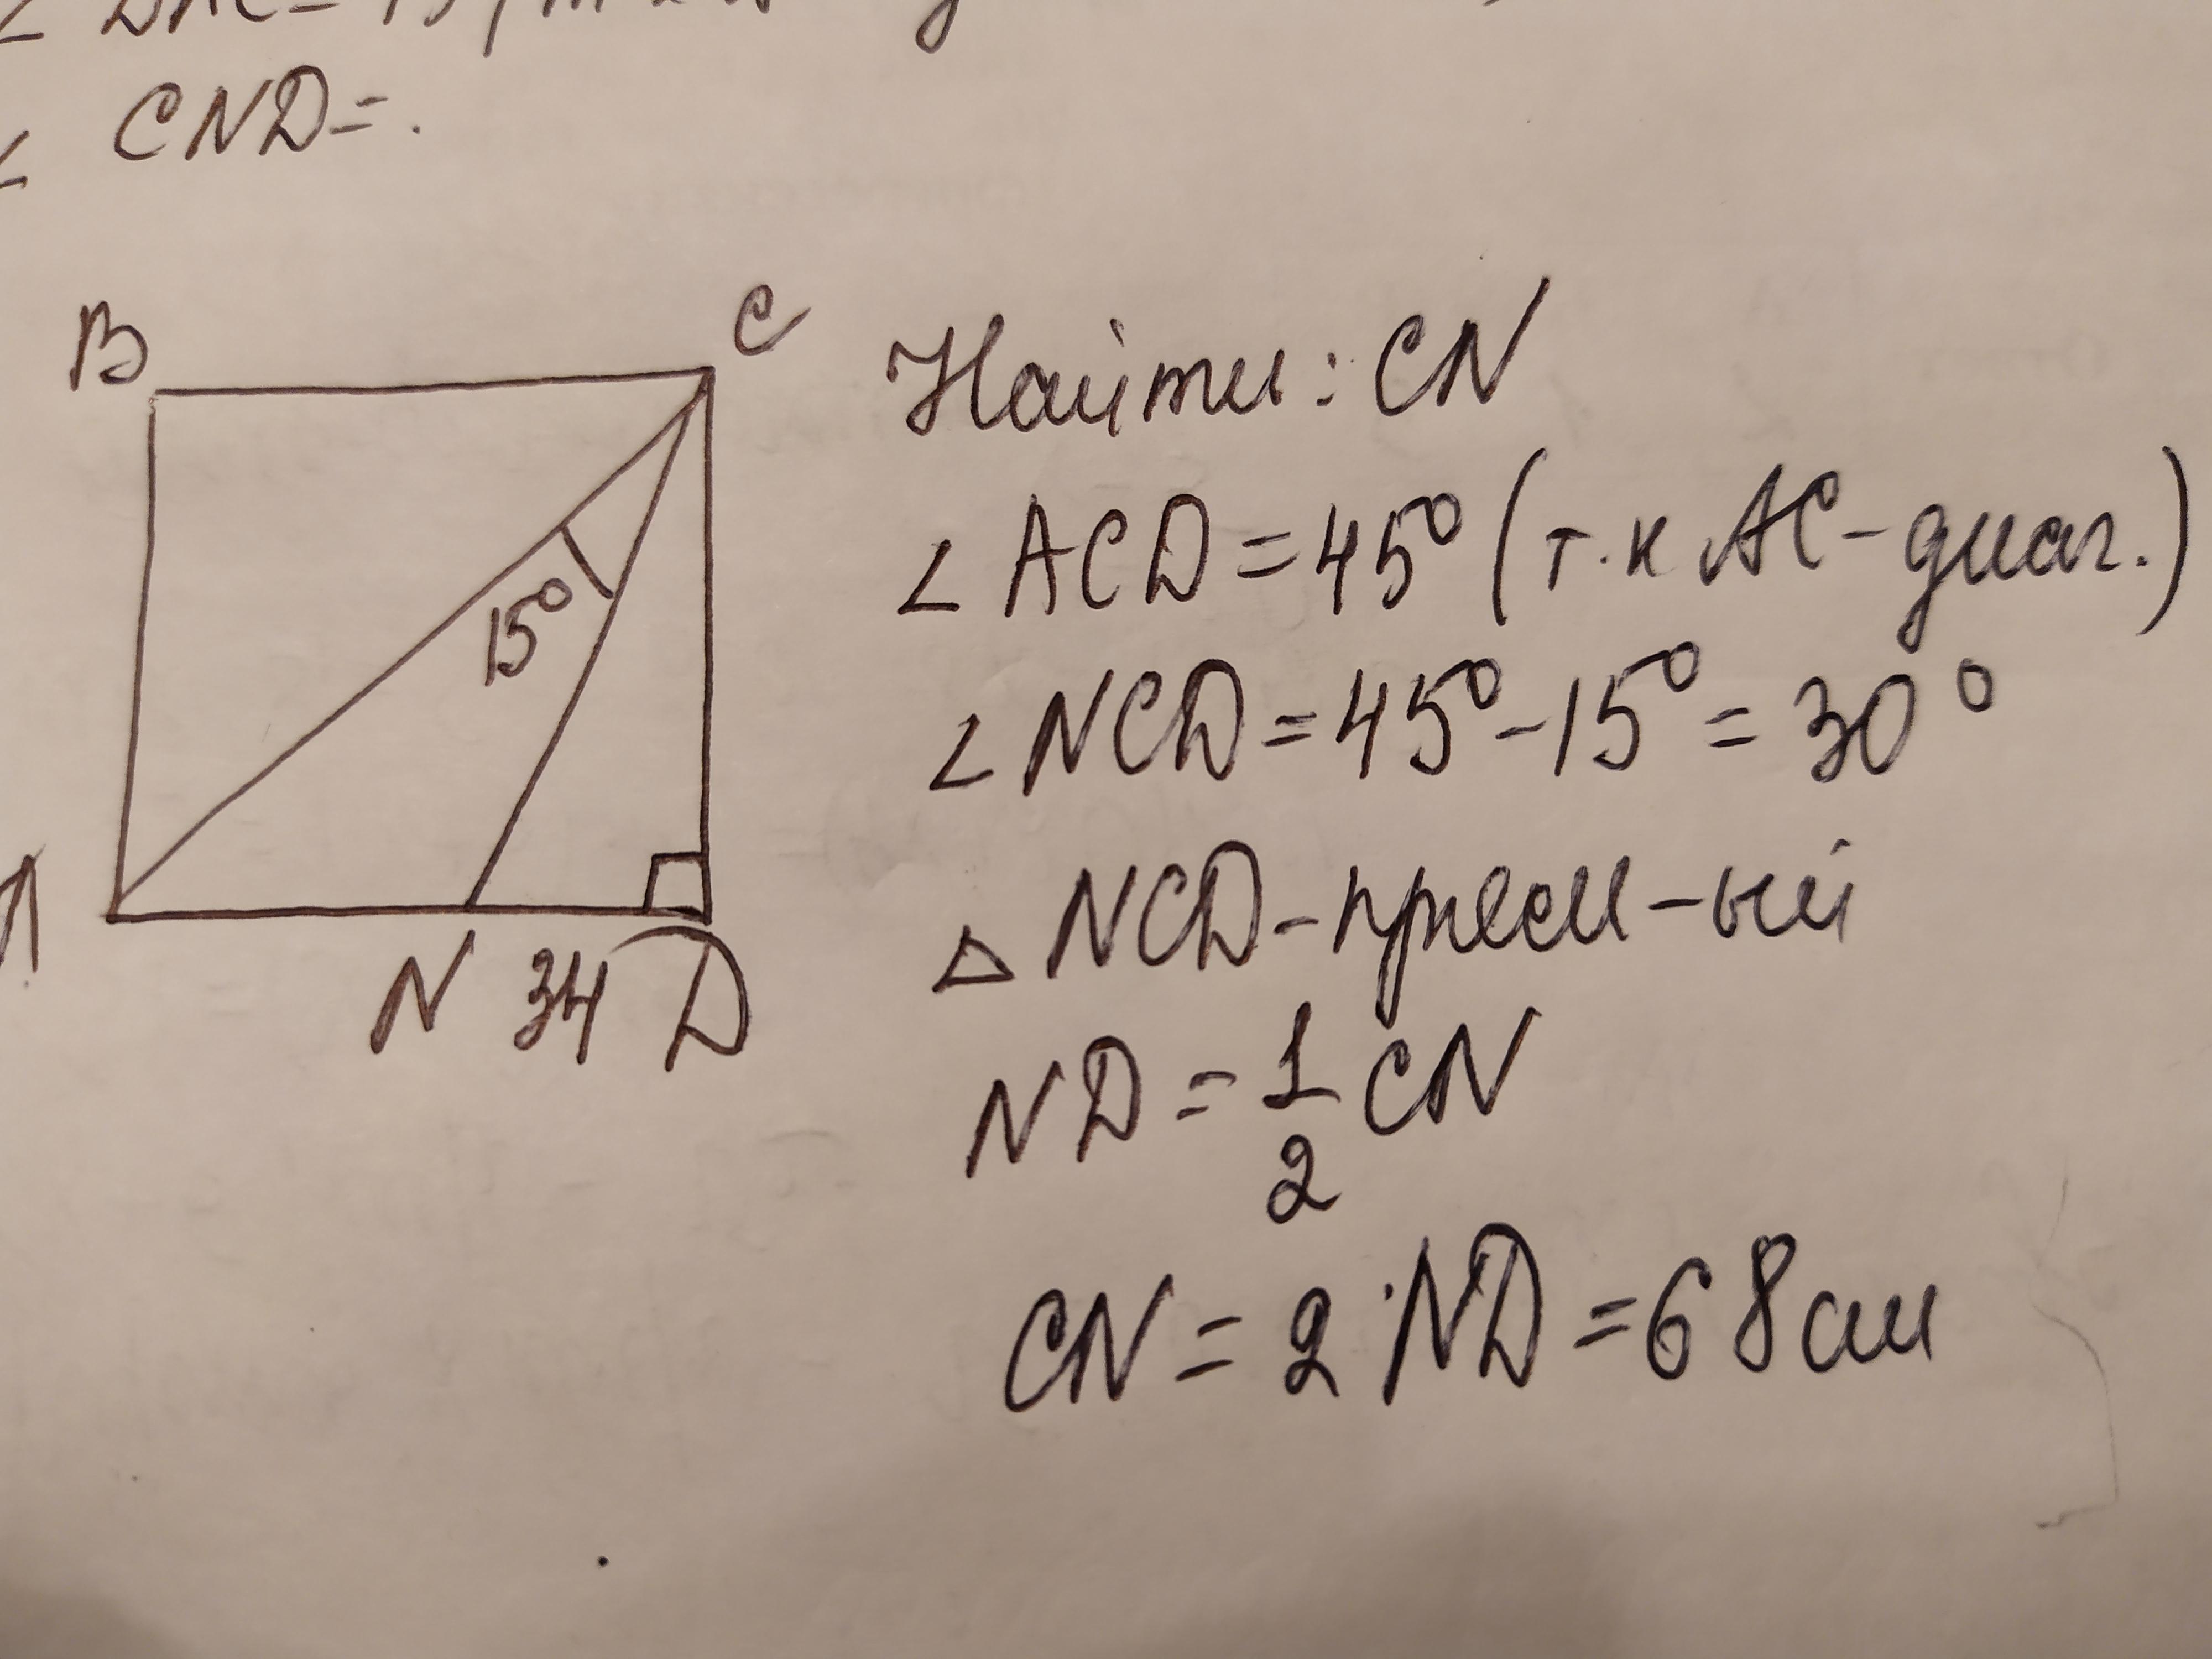 CND=.
B
C
15°
A
N 34 D
Найти: CN
∠ ACD=45° (т.к AC-диаг.)
∠ NCD=45°-15°=30°
△ NCD-
ND=1/2 CN
CN=2·ND=68см